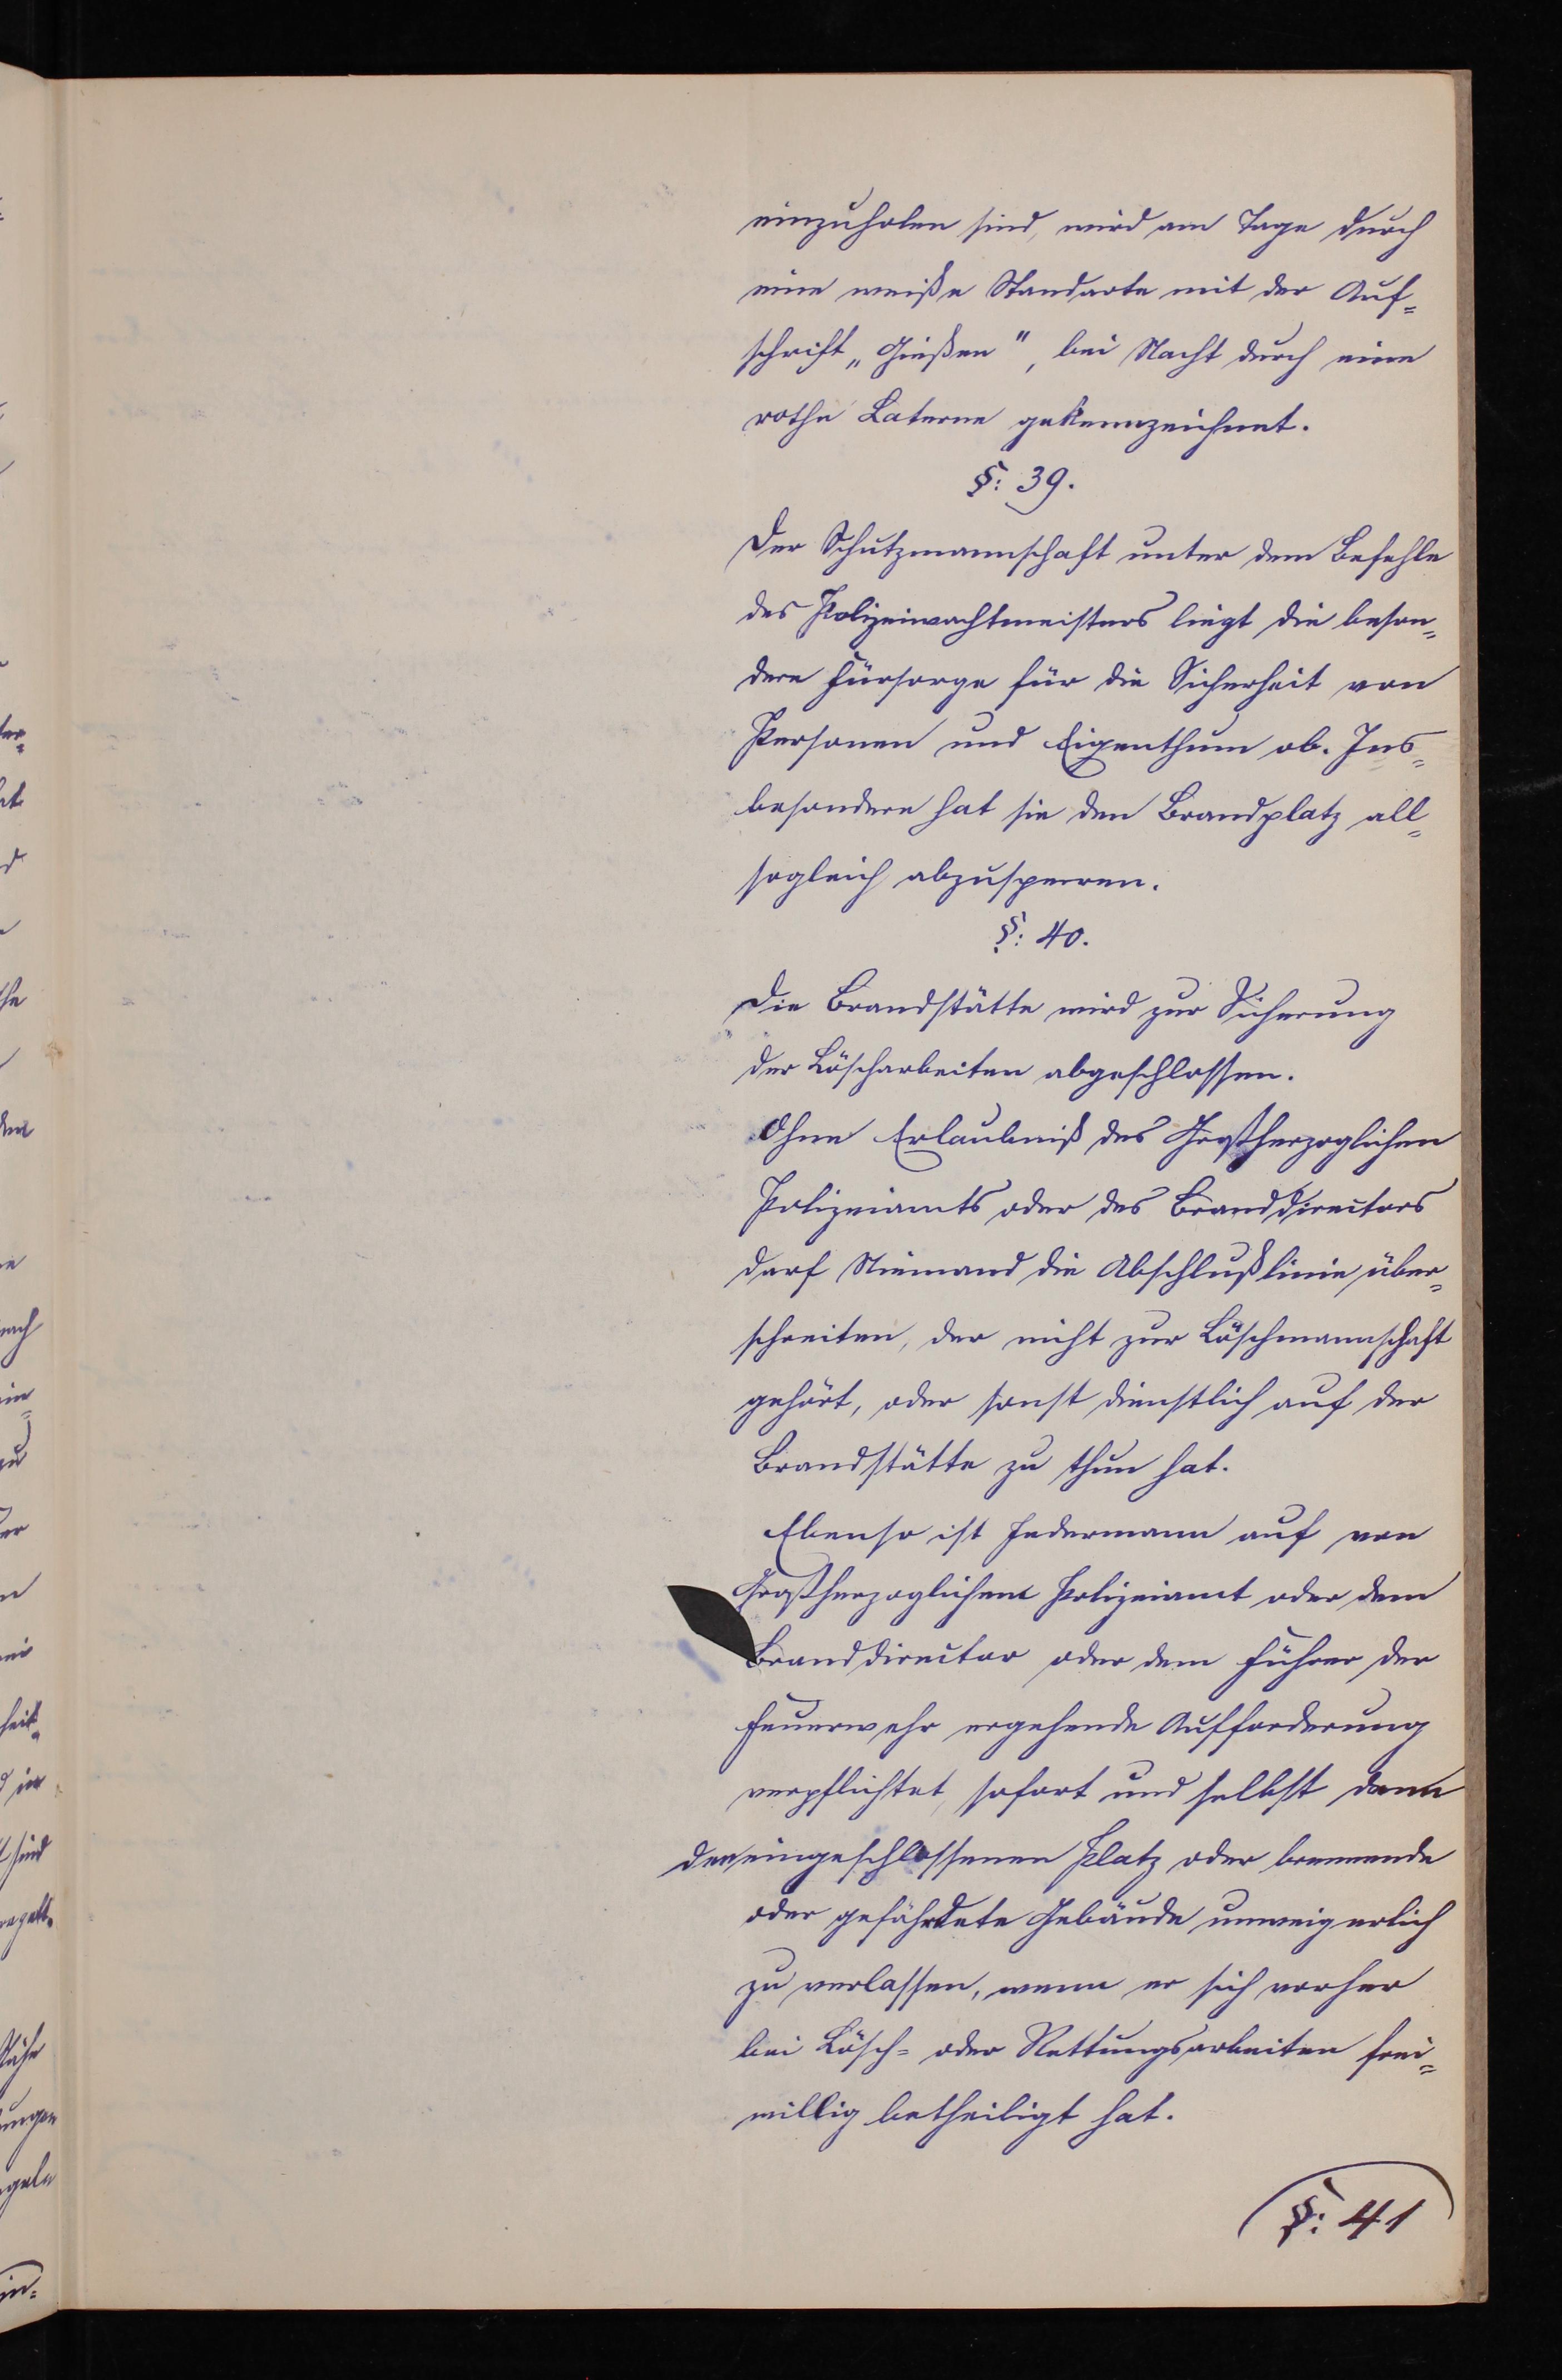 einzuholen sind, wird am Tage durch
eine weiße Standarte mit der Auf-
schrift „Gießen", bei Nacht durch eine
rothe Laterne gekennzeichnet.
§: 39.
Der Schutzmannschaft unter dem Befehle
des Polizeiwachtmeisters liegt die beson-
dere Fürsorge für die Sicherheit von
Personen und Eigenthum ob. Ins-
besondere hat sie den Brandplatz all-
sogleich abzusperren.
§: 40.
Die Brandstätte wird zur Sicherung
der Löscharbeiten abgeschlossen.
Ohne Erlaubniß des Großherzoglichen
Polizeiamts oder des Branddirectors
darf Niemand die Abschlußlinie über-
schreiten, der nicht zur Löschmannschaft
gehört, oder sonst dienstlich auf der
Brandstätte zu thun hat.
Ebenso ist Jedermann auf von
Großherzoglichem Polizeiamt oder dem
Branddirector oder dem Führer der
Feuerwehr ergehende Aufforderung
verpflichtet, sofort und selbst dann
den eingeschlossenen Platz oder brennende
oder gefährdete Gebäude unweigerlich
zu verlassen, wenn er sich vorher
bei Lösch- oder Rettungsarbeiten frei-
willig betheiligt hat.
§: 41